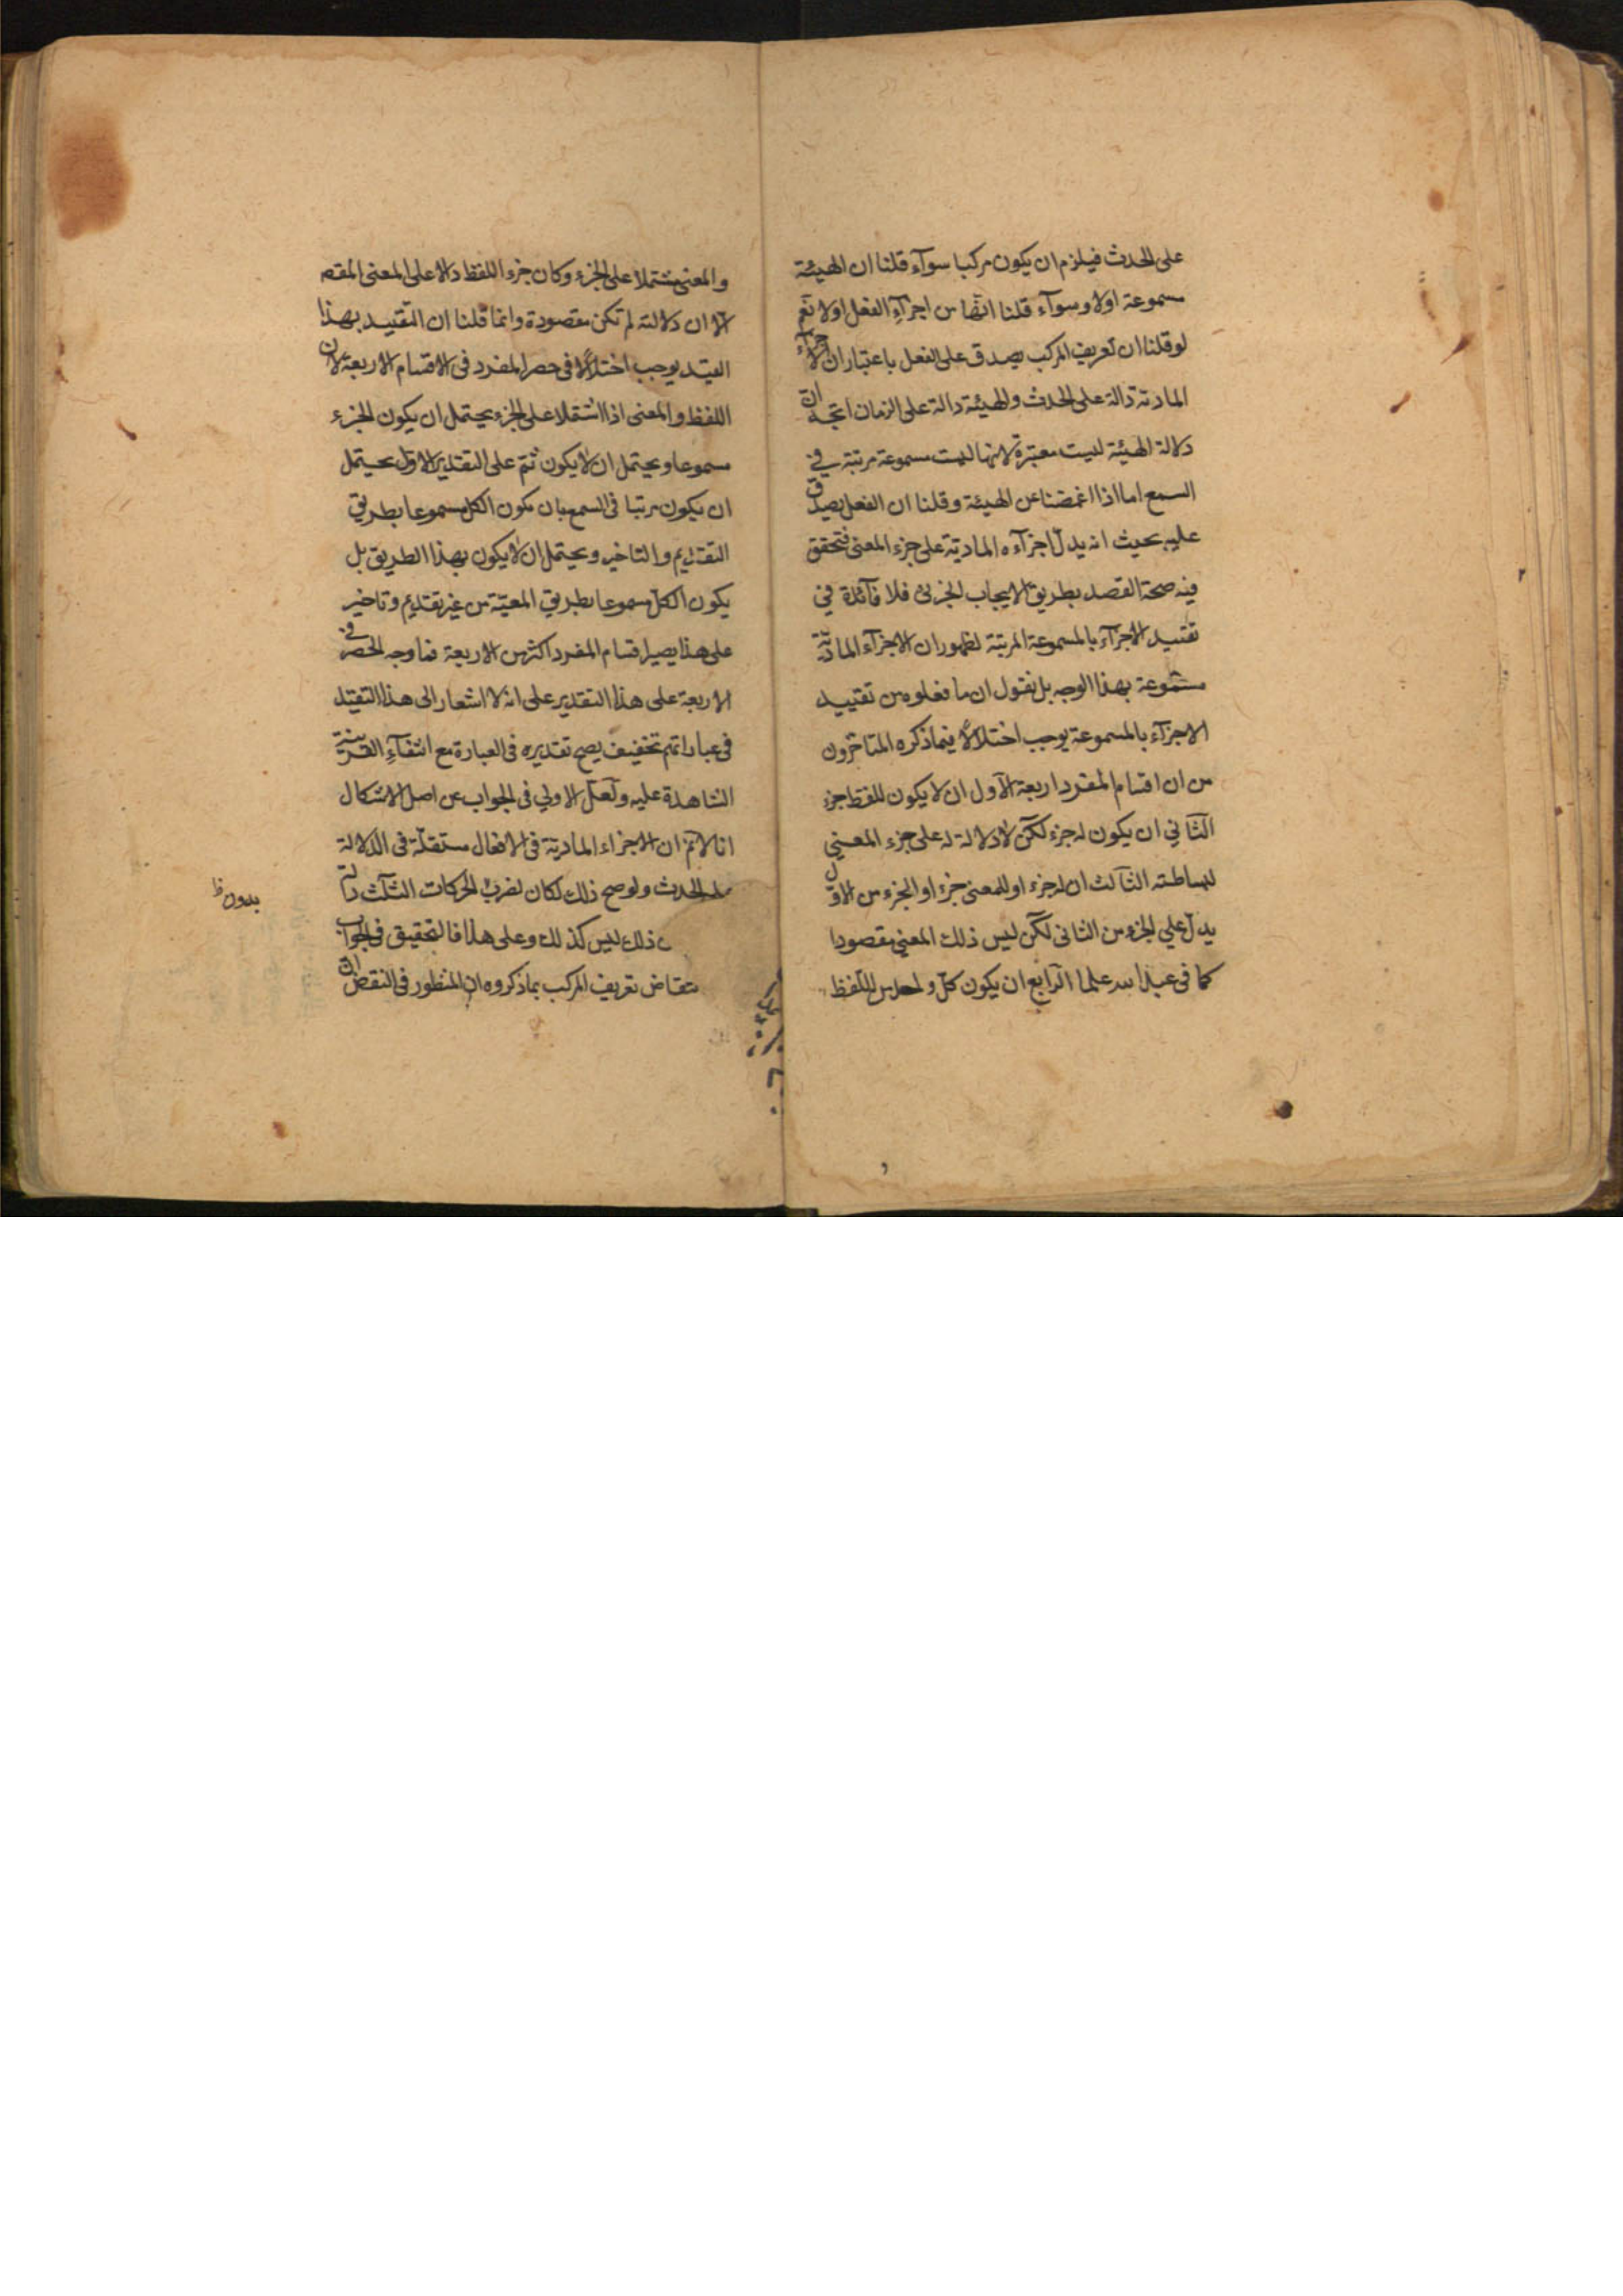 على الحدث فيلزم ان يكون مركبا سوآء قلنا ان الهيئة
مسموعة اولا وسوآء قلنا انها من اجزآء الفعل اولا نعم
لو قلنا ان تعريف المركب يصدق على الفعل باعتبار ان الاجزآء
المادية دالة على الحدث والهيئة دالة على الزمان اتجه ان
دلالة الهيئة ليست معتبرة لانها ليست مسموعة مرتبة في
السمع اما اذا اغمضنا عن الهيئة وقلنا ان الفعل يصدق
عليه بحيث انه يدل اجزآءه المادية على جزء المعنى فتحقق
فيه صحة القصد بطريق الايجاب الجزئى فلا فآئدة في
تقييد الاجزآء بالمسموعة المرتبة لظهور ان الاجزآء المادية
مسموعة بهذا الوجه بل نقول ان ما فعلوه من تقييد
الاجزآء بالمسموعة يوجب اختلالا فيما ذكره المتاخرون
من ان اقسام المفرد اربعة الاول ان لا يكون للفظ جزء
الثاني ان يكون له جزء لكن لا دلالة له على جزء المعنى
لبساطته الثالث ان له جزء او للمعنى جزء او الجزء من الاول
يدل علي الجزء من الثانى لكن ليس ذلك المعني مقصودا
كما فى عبد الله علما الرابع ان يكون كل واحد من اللفظ
والمعنى مشتملا على الجزء وكان جزء اللفظ دالا على المعنى المقصـ
الا ان دلالته لم تكن مقصودة وانما قلنا ان التقييد بهذا
القيد يوجب اختلالا فى حصر المفرد فى الاقسام الاربعة لان
اللفظ والمعنى اذا اشتملا على الجزء يحتمل ان يكون الجزء
مسموعا ويحتمل ان لا يكون ثم على التقدير الاول يحتمل
ان يكون مرتبا فى السمع بان يكون الكل مسموعا بطريق
التقديم والتاخير ويحتمل ان لا يكون بهذا الطريق بل
يكون الكل مسموعا بطريق المعيّة من غير تقديم وتاخير
على هذا يصير اقسام المفرد اكثر من الاربعة فما وجه الحصر في
الاربعة على هذا التقدير على انه لا اشعار الى هذا التقييد
فى عباراتهم تخفيف يصح تقديره فى العبارة مع انتفآء القرينة
الشاهدة عليه ولعل الاولي فى الجواب عن اصل الاشكال
انا لا نم ان الاجزاء المادية فى الافعال مستقلة فى الدلالة
على الحدث ولو صح ذلك لكان لضرب الحركات الثلث دالة
بدون ظ
ذلك ليس كذلك وعلى هذا فالتحقيق فى الجواب
تقاض تعريف المركب بما ذكروه ان المنظور فى النقض ان